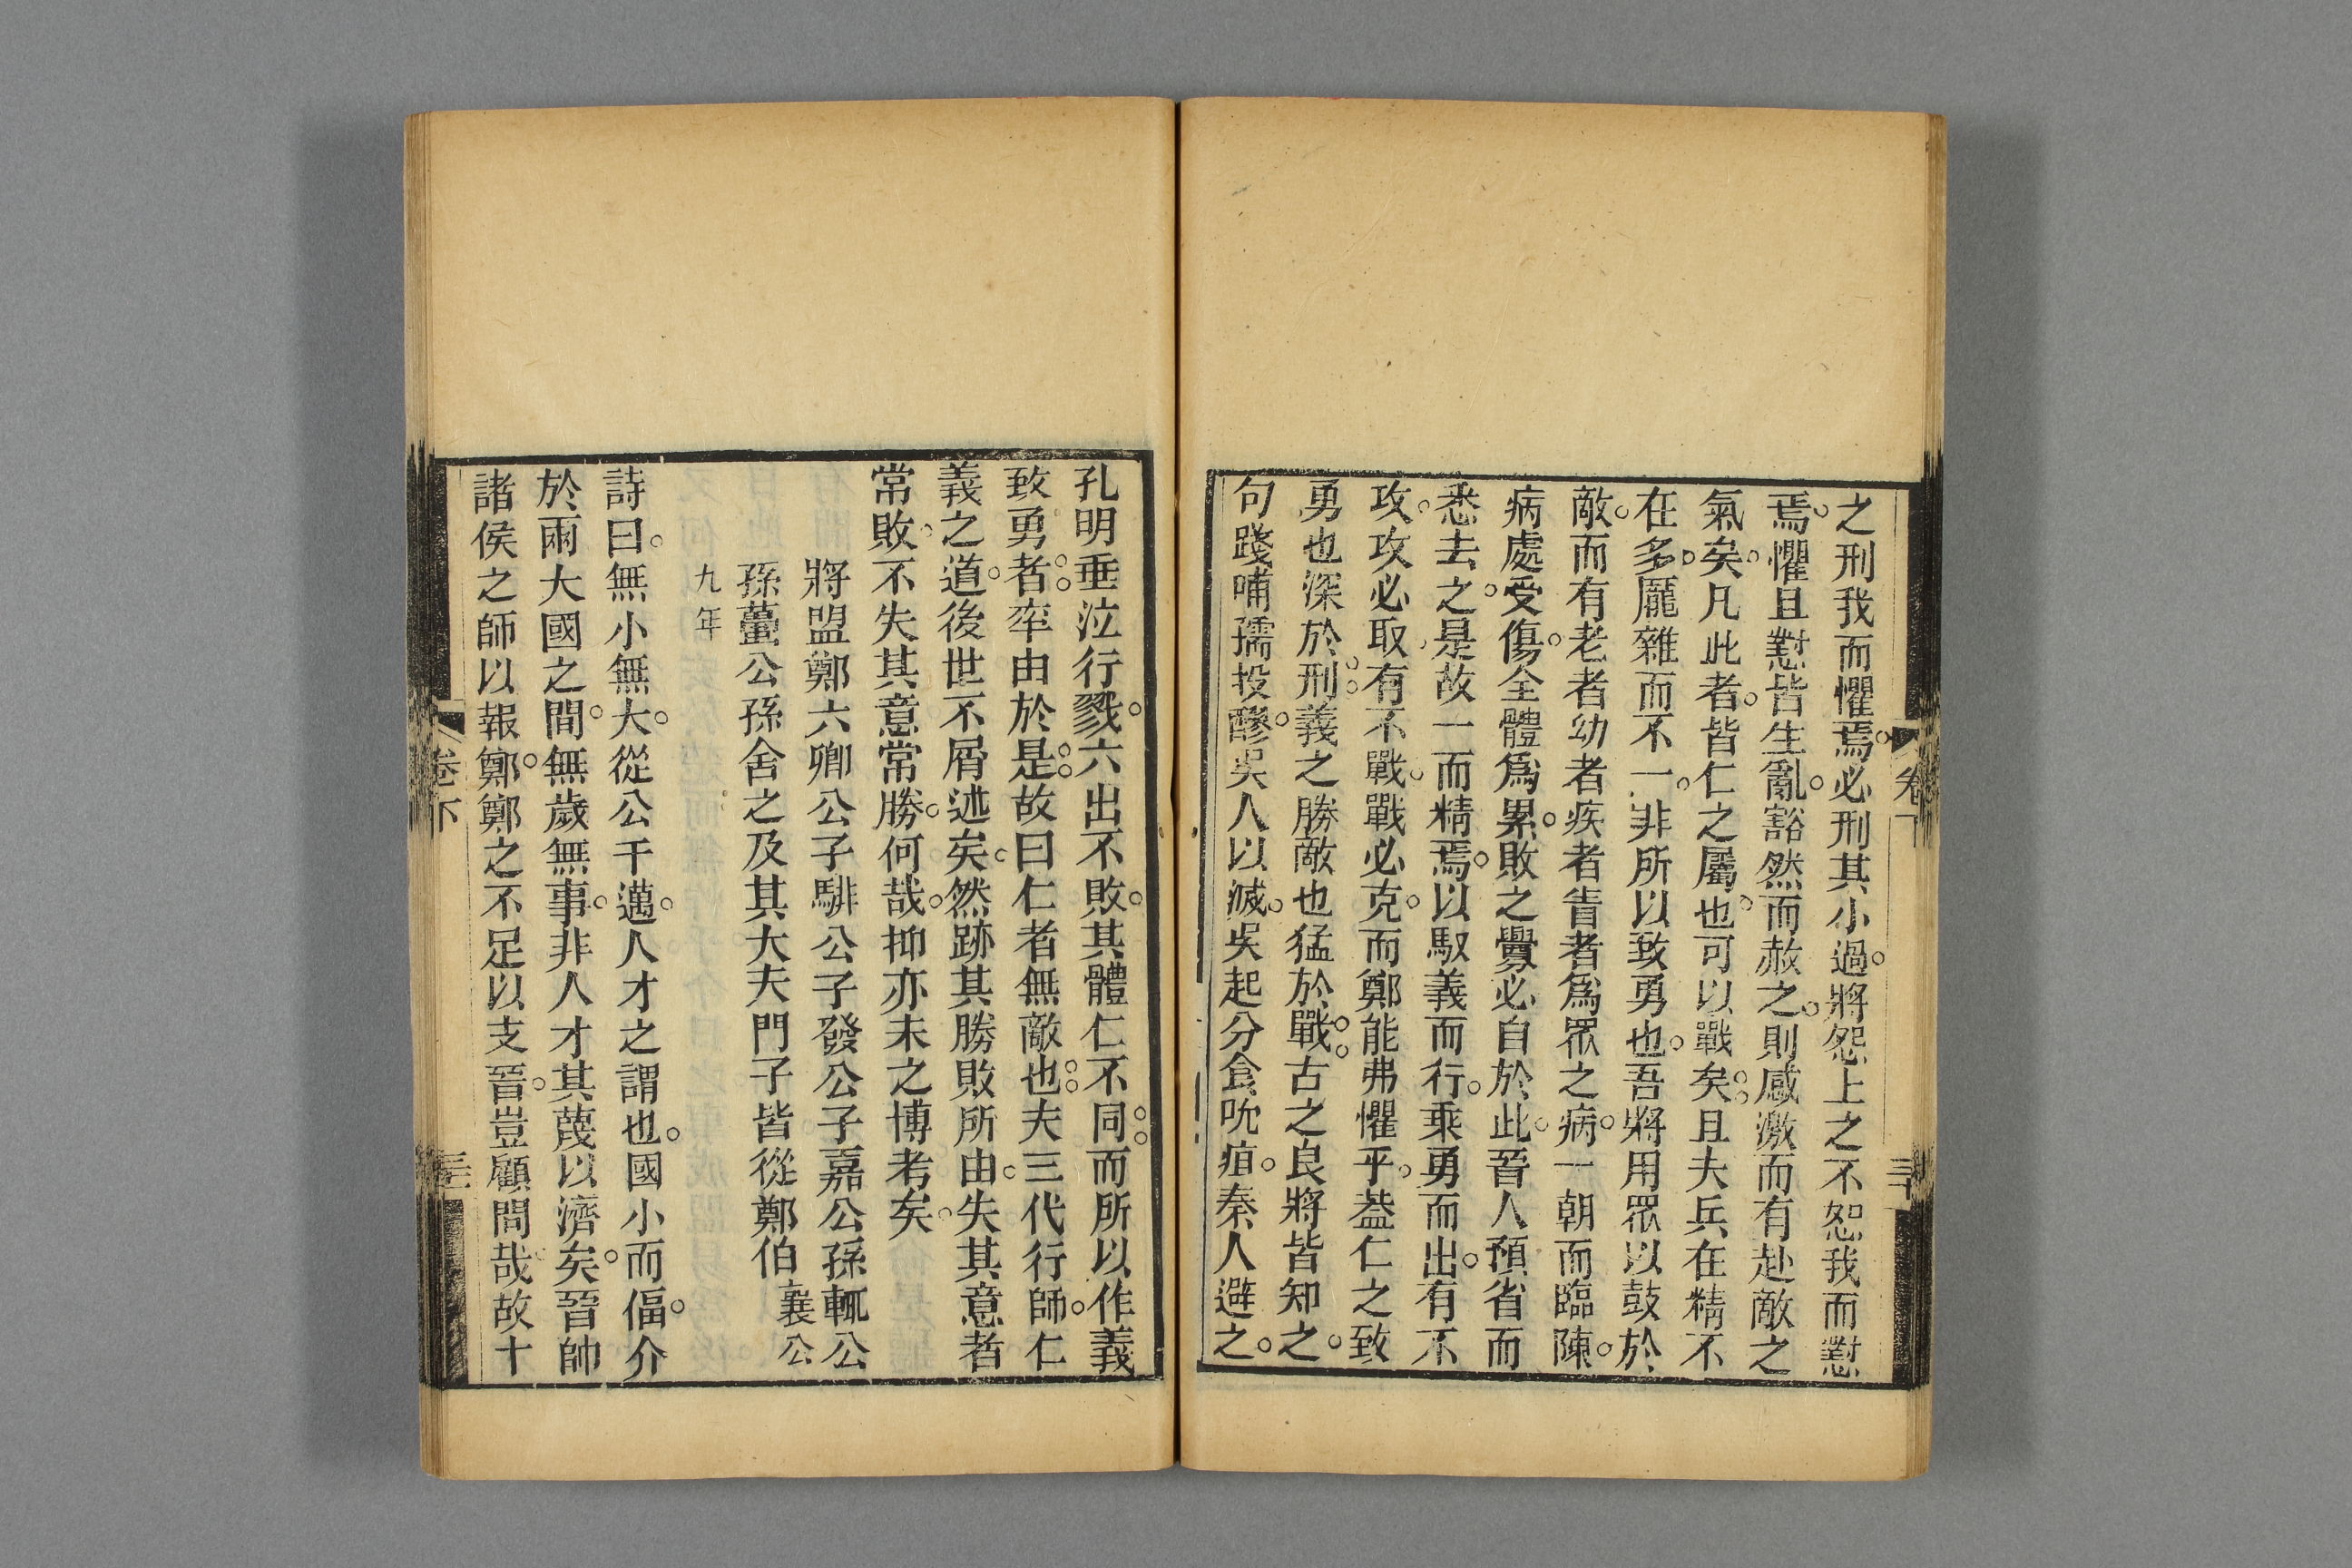 之刑我而懼焉必刑其小過將怨上之不恕我而懟
焉懼且懟皆生亂豁然而赦之則感激而有赴敵之
氣矣凡此者皆仁之屬也可以戰矣且夫兵在精不
在多厖雜而不一非所以致勇也吾將用眾以鼓於
敵而有老者幼者疾者眚者爲眾之病一朝而臨陳
病處受傷全體爲累敗之釁必自於此晉人預省而
悉去之是故一而精焉以馭義而行乘勇而出有不
攻攻必取有不戰戰必克而鄭能弗懼乎葢仁之致
勇也深於刑義之勝敵也猛於戰古之良將皆知之
句踐哺孺投醪吳人以滅吳起分食吮疽秦人避之
卷下
三十
孔明垂泣行戮六出不敗其體仁不同而所以作義
致勇者率由於是故曰仁者無敵也夫三代行師仁
義之道後世不屑述矣然跡其勝敗所由失其意者
常敗不失其意常勝何哉抑亦未之博考矣
將盟鄭六卿公子騑公子發公子嘉公孫輒公
孫蠆公孫舍之及其大夫門子皆從鄭伯襄公
九年
詩曰無小無大從公于邁人才之謂也國小而偪介
於兩大國之間無歲無事非人才其蔑以濟矣晉帥
諸侯之師以報鄭鄭之不足以支晉豈顧問哉故十
卷下